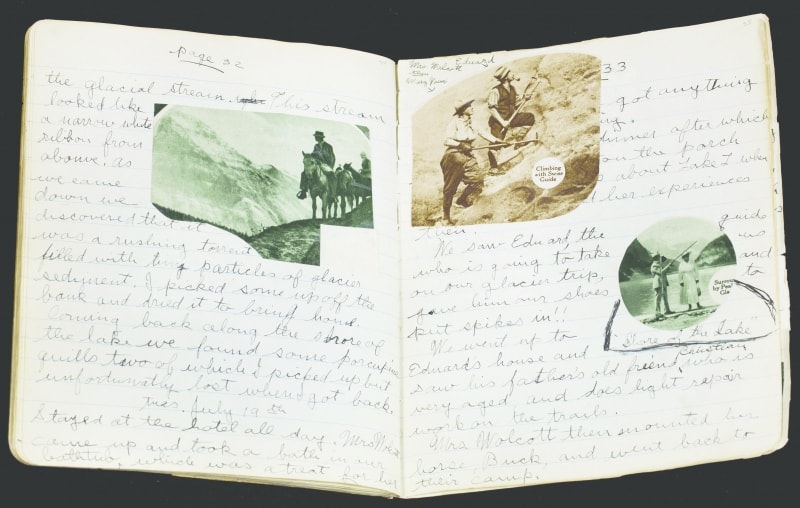 page 32
the glacial stream. This stream
looked like
a narrow white
ribbon from
above. As
we came
down we
discovered that it
was a rushing torrent
filled with tiny particles of glacier
sediment. I picked some up off the
bank and dried it to bring home.
Coming back along the shore of
the lake we found some porcupine
quills two of which I picked up but
unfortunatly lost when I got back.
Tues. July 19th
Stayed at the hotel all day. Mrs. Wolcott
came up and took a bath in our
bathtub, which was a treat for her
Mrs. Wolcott Eduard
33
Climbing
with Swiss
Guide
got anything
dinner after which
on the porch
about Lake
when
her experiences
then.
We saw Eduard, the guide
who is going to take us
on our glacier trip, and
gave him our shoes to
put spikes in!!
Summer
by Peyto
Gla
"Shore of the Lake"
We went up to
Eduard's house and Christian
saw his father's old friend, who is
very aged, and does light repair
work on the trails.
Mrs. Wolcott then mounted her
horse, Buck, and went back to
their camp.